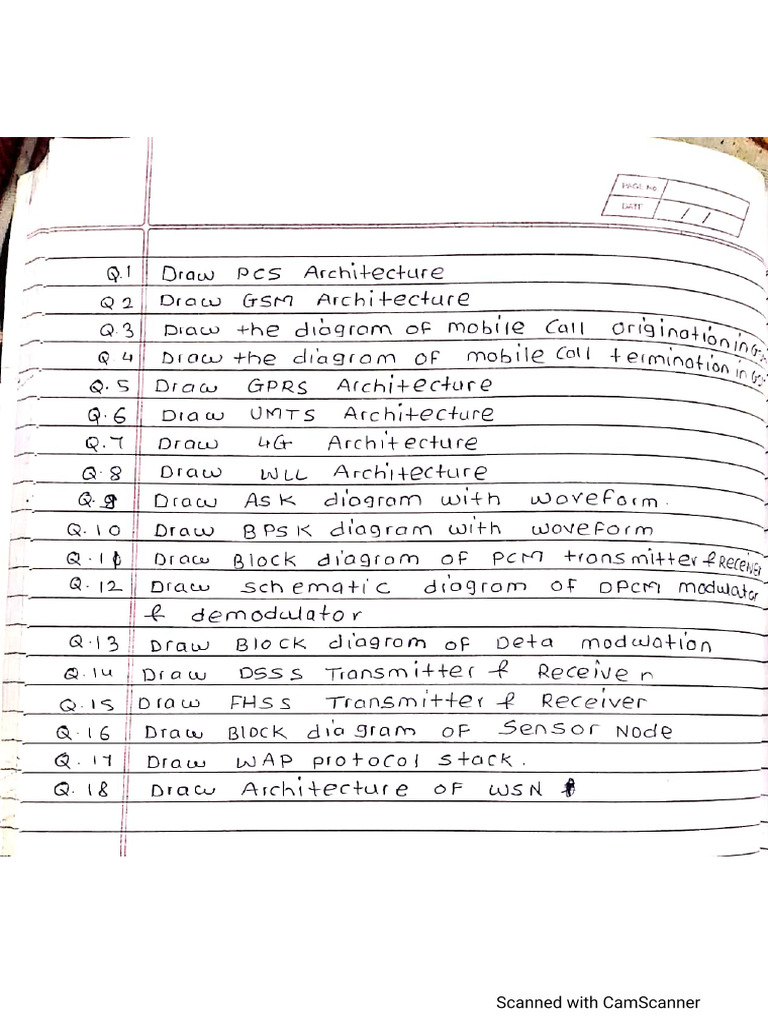 PAGE NO
DATE / /
Q.1 Draw PCS Architecture
Q 2 Draw GSM Architecture
Q.3 Draw the diagram of mobile Call Origination in
Q.4 Draw the diagram of mobile Call termination in
Q.5 Draw GPRS Architecture
Q.6 Draw UMTS Architecture
Q.7 Draw 4G Architecture
Q.8 Draw WLL Architecture
Q.9 Draw ASK diagram with waveform.
Q.10 Draw BPSK diagram with waveform
Q.11 Draw Block diagram of PCM transmitter & Receiver
Q.12 Draw schematic diagram of DPCM modulator
& demodulator
Q.13 Draw Block diagram of Deta modulation
Q.14 Draw DSSS Transmitter & Receiver
Q.15 Draw FHSS Transmitter & Receiver
Q.16 Draw Block diagram of Sensor Node
Q.17 Draw WAP protocol stack.
Q.18 Draw Architecture of WSN
Scanned with CamScanner